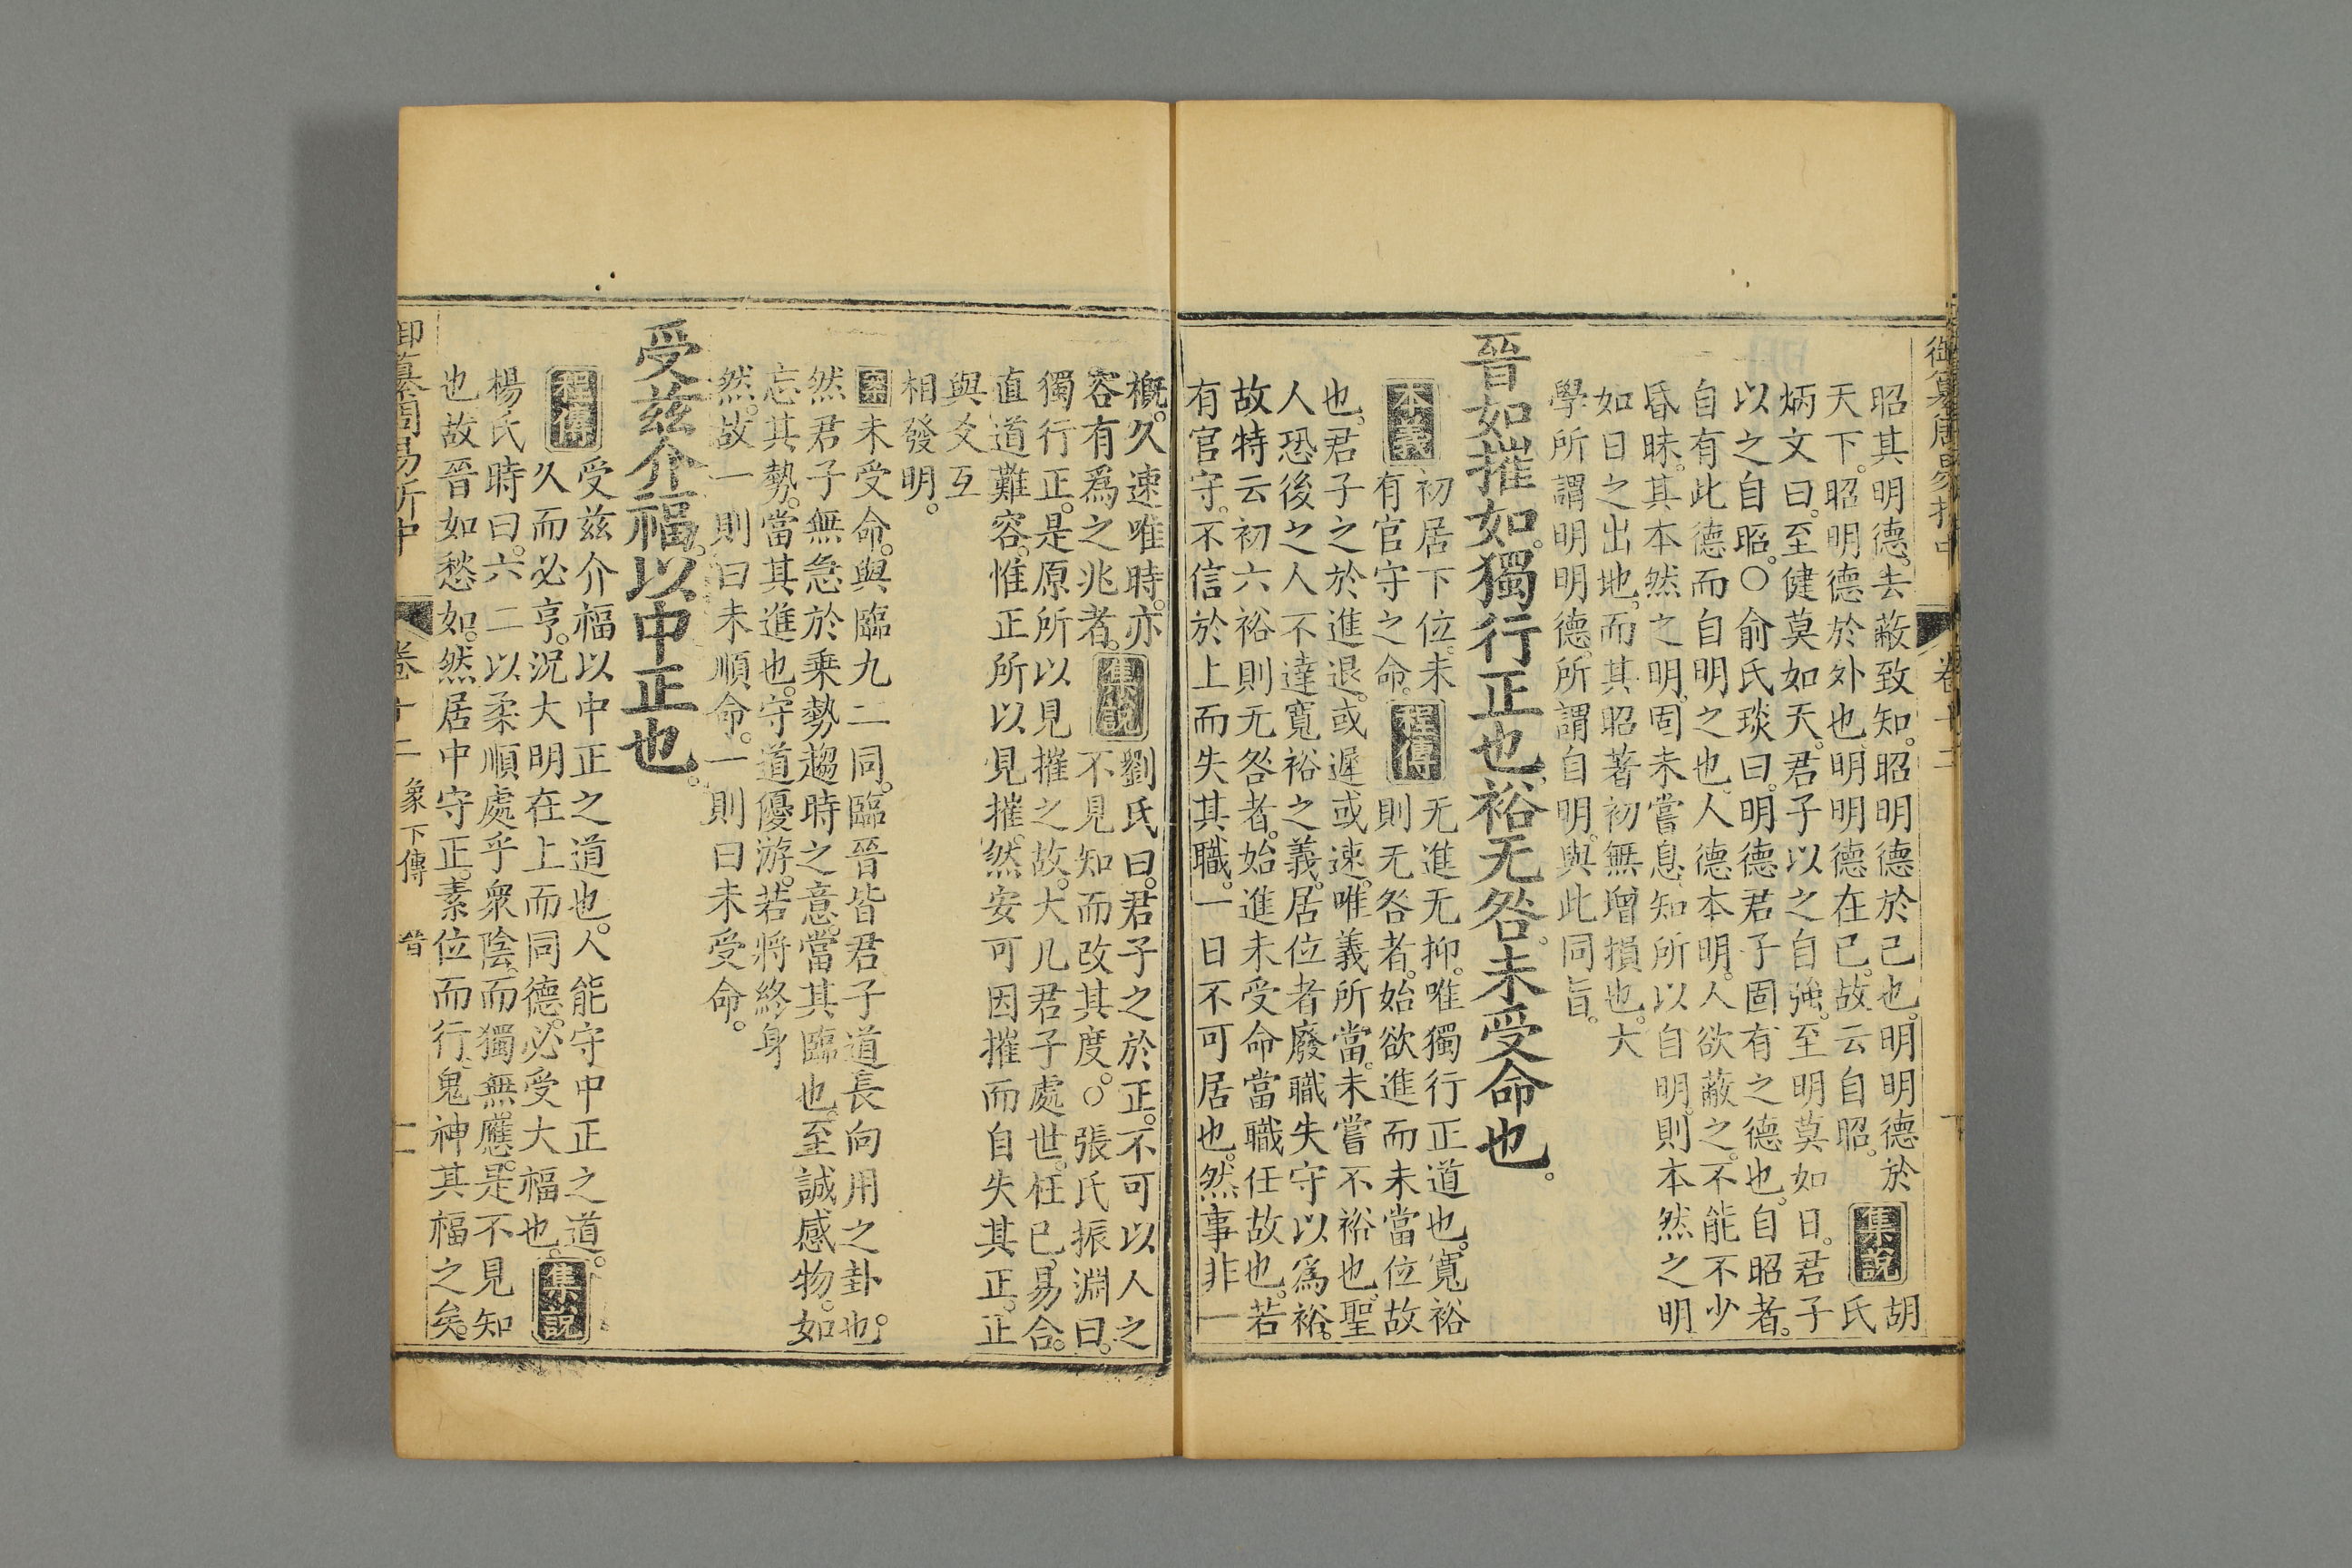 御纂周易折中 卷十二
昭其明德。去蔽致知。昭明德於己也。明明德於
天下。昭明德於外也。明明德在已。故云自昭。
集說
胡
氏
炳文曰。至健莫如天。君子以之自強。至明莫如日。君子
以之自昭。○俞氏琰曰。明德君子固有之德也。自昭者。
自有此德而自明之也。人德本明。人欲蔽之。不能不少
昏昧。其本然之明。固未嘗息。知所以自明。則本然之明
如日之出地。而其昭著初無增損也。大
學所謂明明德。所謂自明。與此同旨。
晉如摧如。獨行正也。裕无咎。未受命也。
本義
初居下位。未
有官守之命。
程傳
无進无抑。唯獨行正道也。寬裕
則无咎者。始欲進而未當位故
也。君子之於進退。或遲或速。唯義所當。未嘗不裕也。聖
人恐後之人不達寬裕之義。居位者廢職失守以爲裕。
故特云初六裕則无咎者。始進未受命當職任故也。若
有官守。不信於上而失其職。一日不可居也。然事非一
槪。久速唯時。亦
容有爲之兆者。
集說
劉氏曰。君子之於正。不可以人之
不見知而改其度。○張氏振淵曰。
獨行正。是原所以見摧之故。大凡君子處世。枉已易合。
直道難容。惟正所以見摧。然安可因摧而自失其正。正
與爻互
相發明。
案
未受命。與臨九二同。臨晉皆君子道長向用之卦也。
然君子無急於乗勢趨時之意。當其臨也。至誠感物。如
忘其勢。當其進也。守道優游。若將終身
然。故一則曰未順命。一則曰未受命。
受兹介福。以中正也。
程傳
受兹介福以中正之道也。人能守中正之道。
久而必亨。況大明在上而同德。必受大福也。
集說
楊氏時曰。六二以柔順處乎衆陰。而獨無應。是不見知
也故晉如愁如。然居中守正。素位而行。鬼神其福之矣。
御纂周易折中 卷十二 象下傳 晉 二